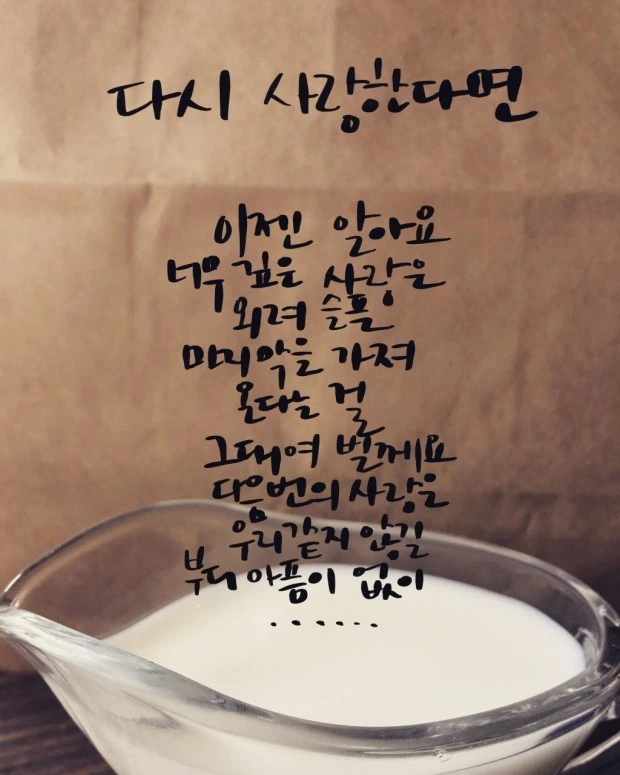 다시 사랑한다면
이젠 알아요
너무 깊은 사랑은
외려 슬픔
마지막을 가져
온다는 걸
그대여 빌께요
다음번의 사랑은
우리같지 않길
부디 아픔이 없이
......